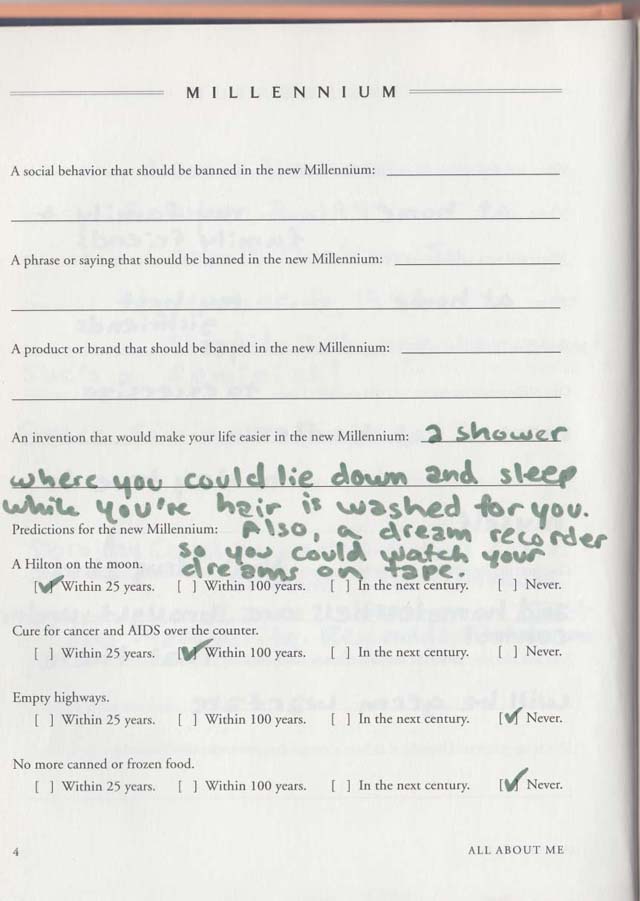 MILLENNIUM
A social behavior that should be banned in the new Millennium:
A phrase or saying that should be banned in the new Millennium:
A product or brand that should be banned in the new Millennium:
An invention that would make your life easier in the new Millennium: a shower
where you could lie down and sleep
while you're hair is washed for you.
Predictions for the new Millennium: Also, a dream recorder
so you could watch your
A Hilton on the moon. dreams on tape.
[✓] Within 25 years. [ ] Within 100 years. [ ] In the next century. [ ] Never.
Cure for cancer and AIDS over the counter.
[ ] Within 25 years. [✓] Within 100 years. [ ] In the next century. [ ] Never.
Empty highways.
[ ] Within 25 years. [ ] Within 100 years. [ ] In the next century. [✓] Never.
No more canned or frozen food.
[ ] Within 25 years. [ ] Within 100 years. [ ] In the next century. [✓] Never.
4 ALL ABOUT ME